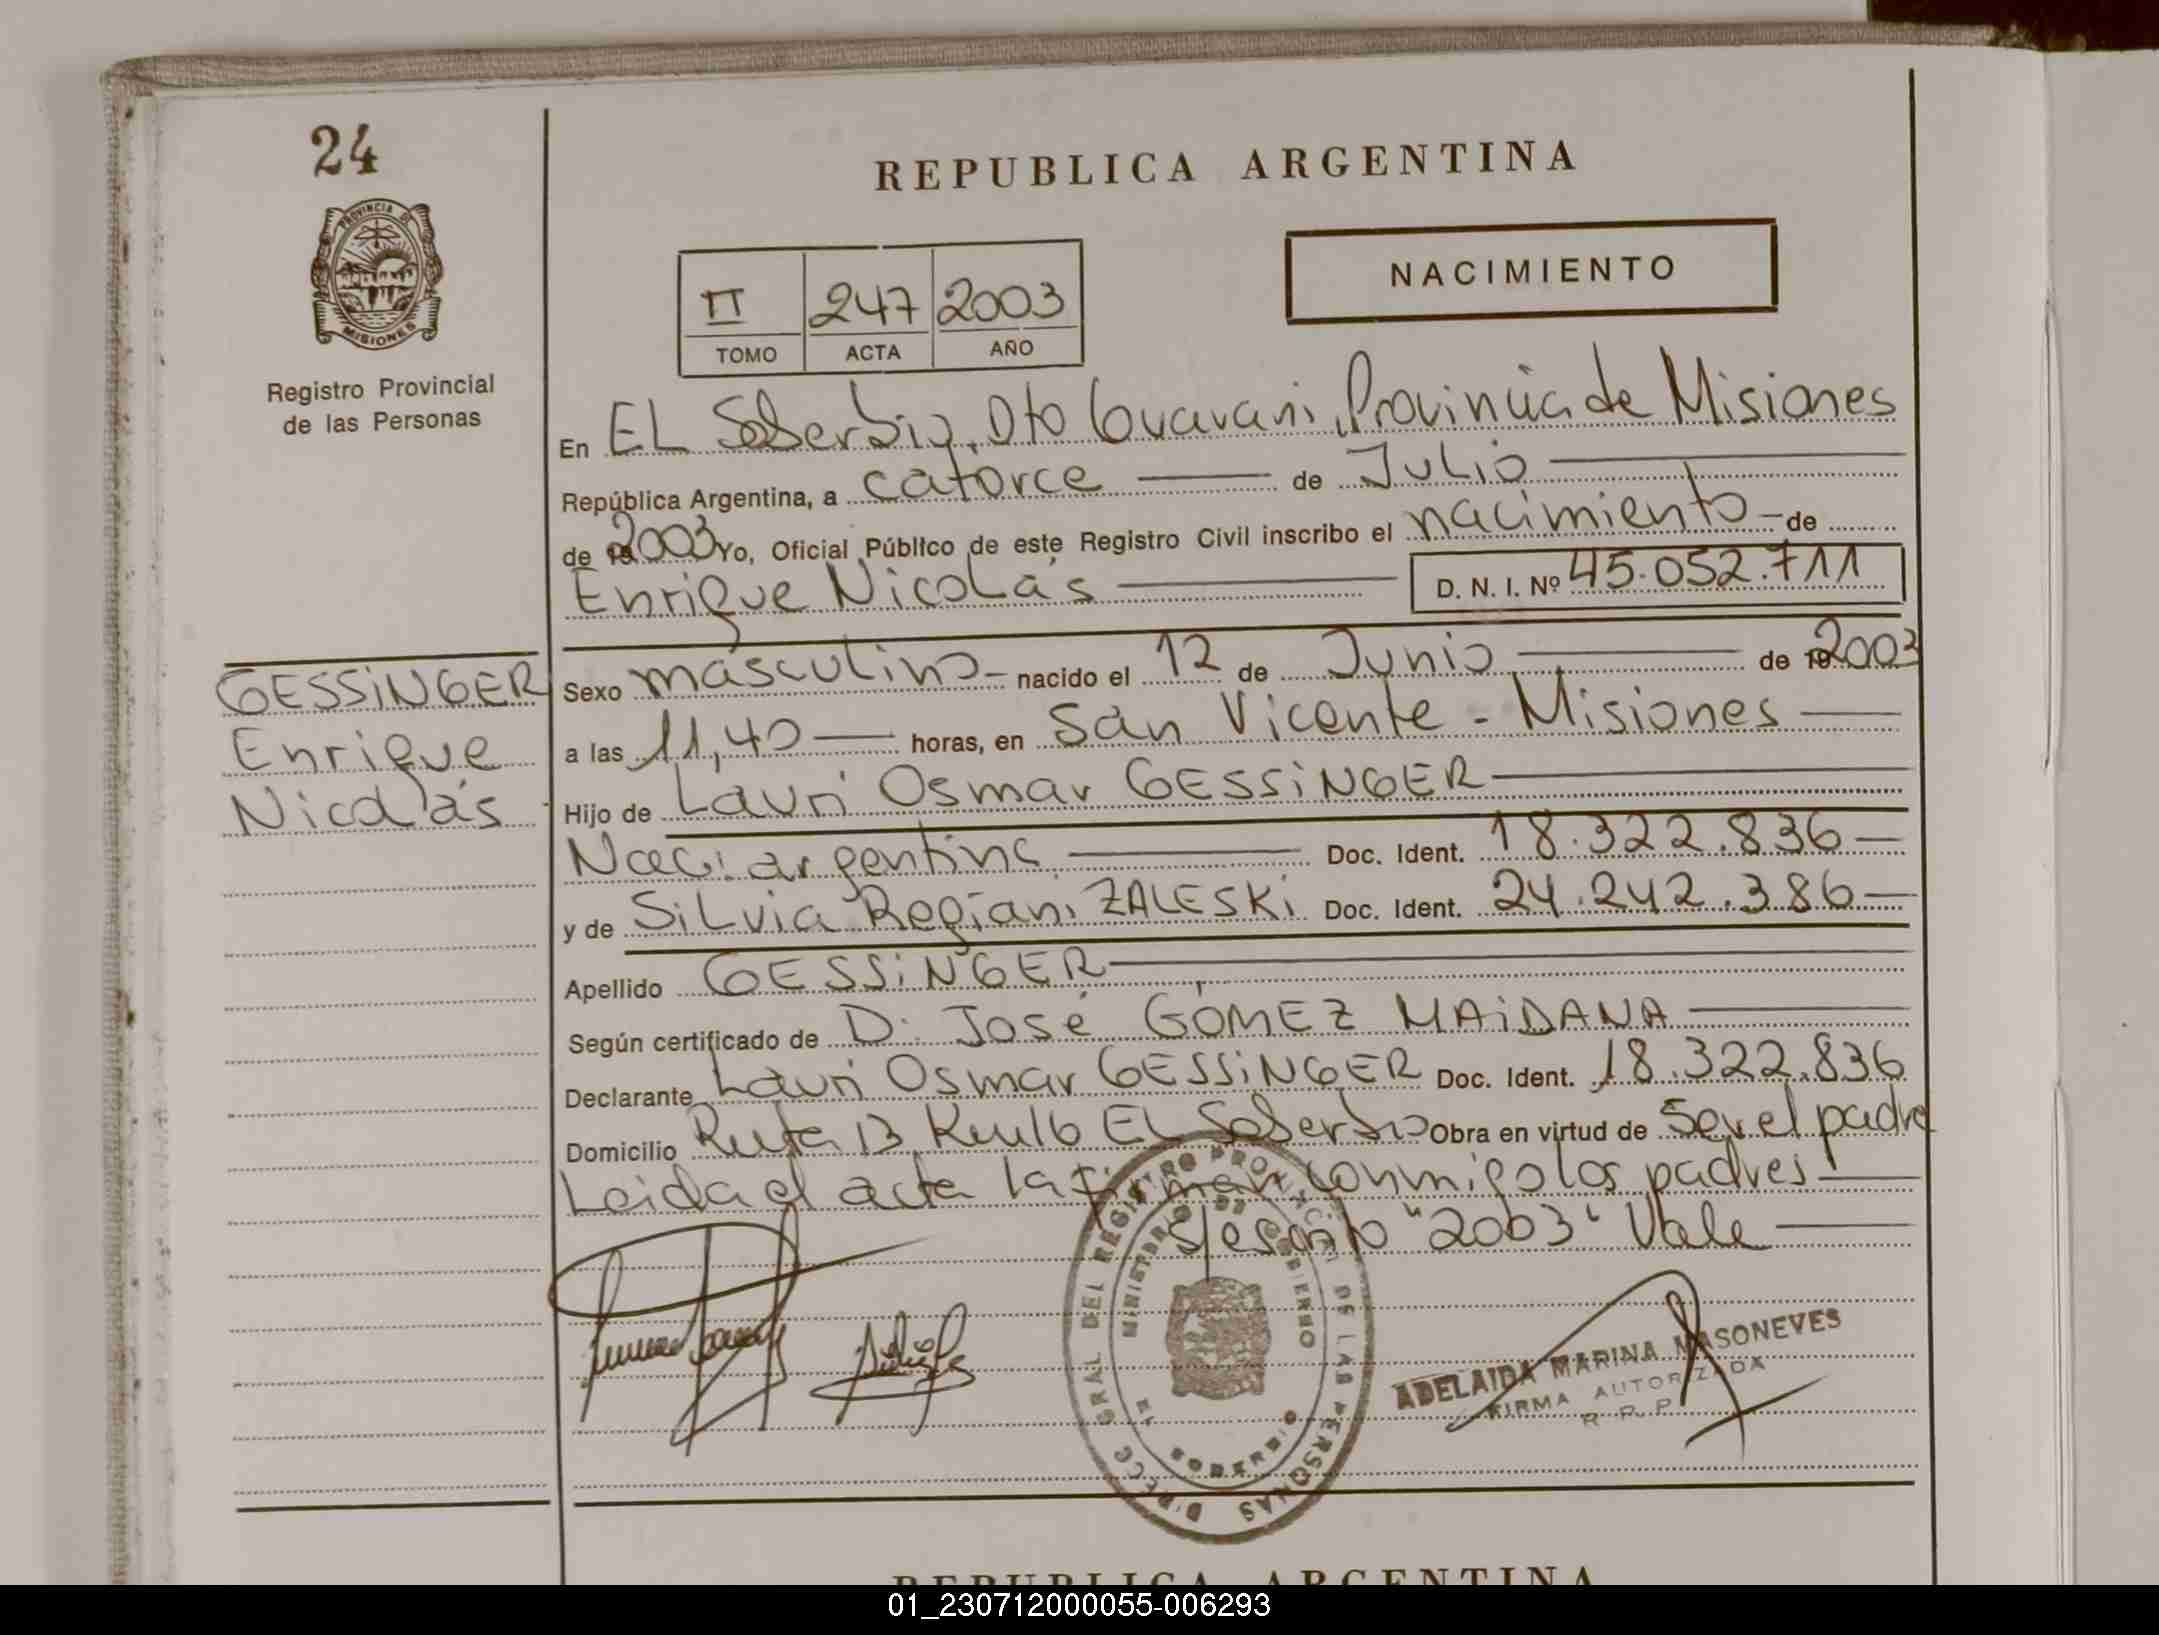 24
PROVINCIA DE
MISIONES
Registro Provincial
de las Personas
REPUBLICA ARGENTINA
NACIMIENTO
II 247 2003
TOMO ACTA AÑO
En EL Soberbio, Dto Guarani, Provincia de Misiones
República Argentina, a catorce de Julio
de 19 2003 Yo, Oficial Público de este Registro Civil inscribo el nacimiento de
Enrique Nicolás D. N. I. Nº 45.052.711
GESSiNGER
Enrique
Nicolás
Sexo masculino nacido el 12 de Junio de 19 2003
a las 11,40 horas, en San Vicente - Misiones
Hijo de Lauri Osmar GESSiNGER
Nac: argentina Doc. Ident. 18.322.836
y de SiLvia Regiani ZALESKi Doc. Ident. 24.242.386
Apellido GESSiNGER
Según certificado de D. José GÓMEZ MAiDANA
Declarante Lauri Osmar GESSiNGER Doc. Ident. 18.322.836
Domicilio Ruta 13 Km 16 EL Soberbio Obra en virtud de ser el padre
Leida el acta la firman conmigo los padres
s/escrito "2003" Vale
DIRECC. GRAL DEL REGISTRO PROVINCIAL DE LAS PERSONAS
MINISTERIO DE GOBIERNO
ADELAIDA MARINA MASONEVES
FIRMA AUTORIZADA
R. R. P.
REPUBLICA ARGENTINA
01_230712000055-006293